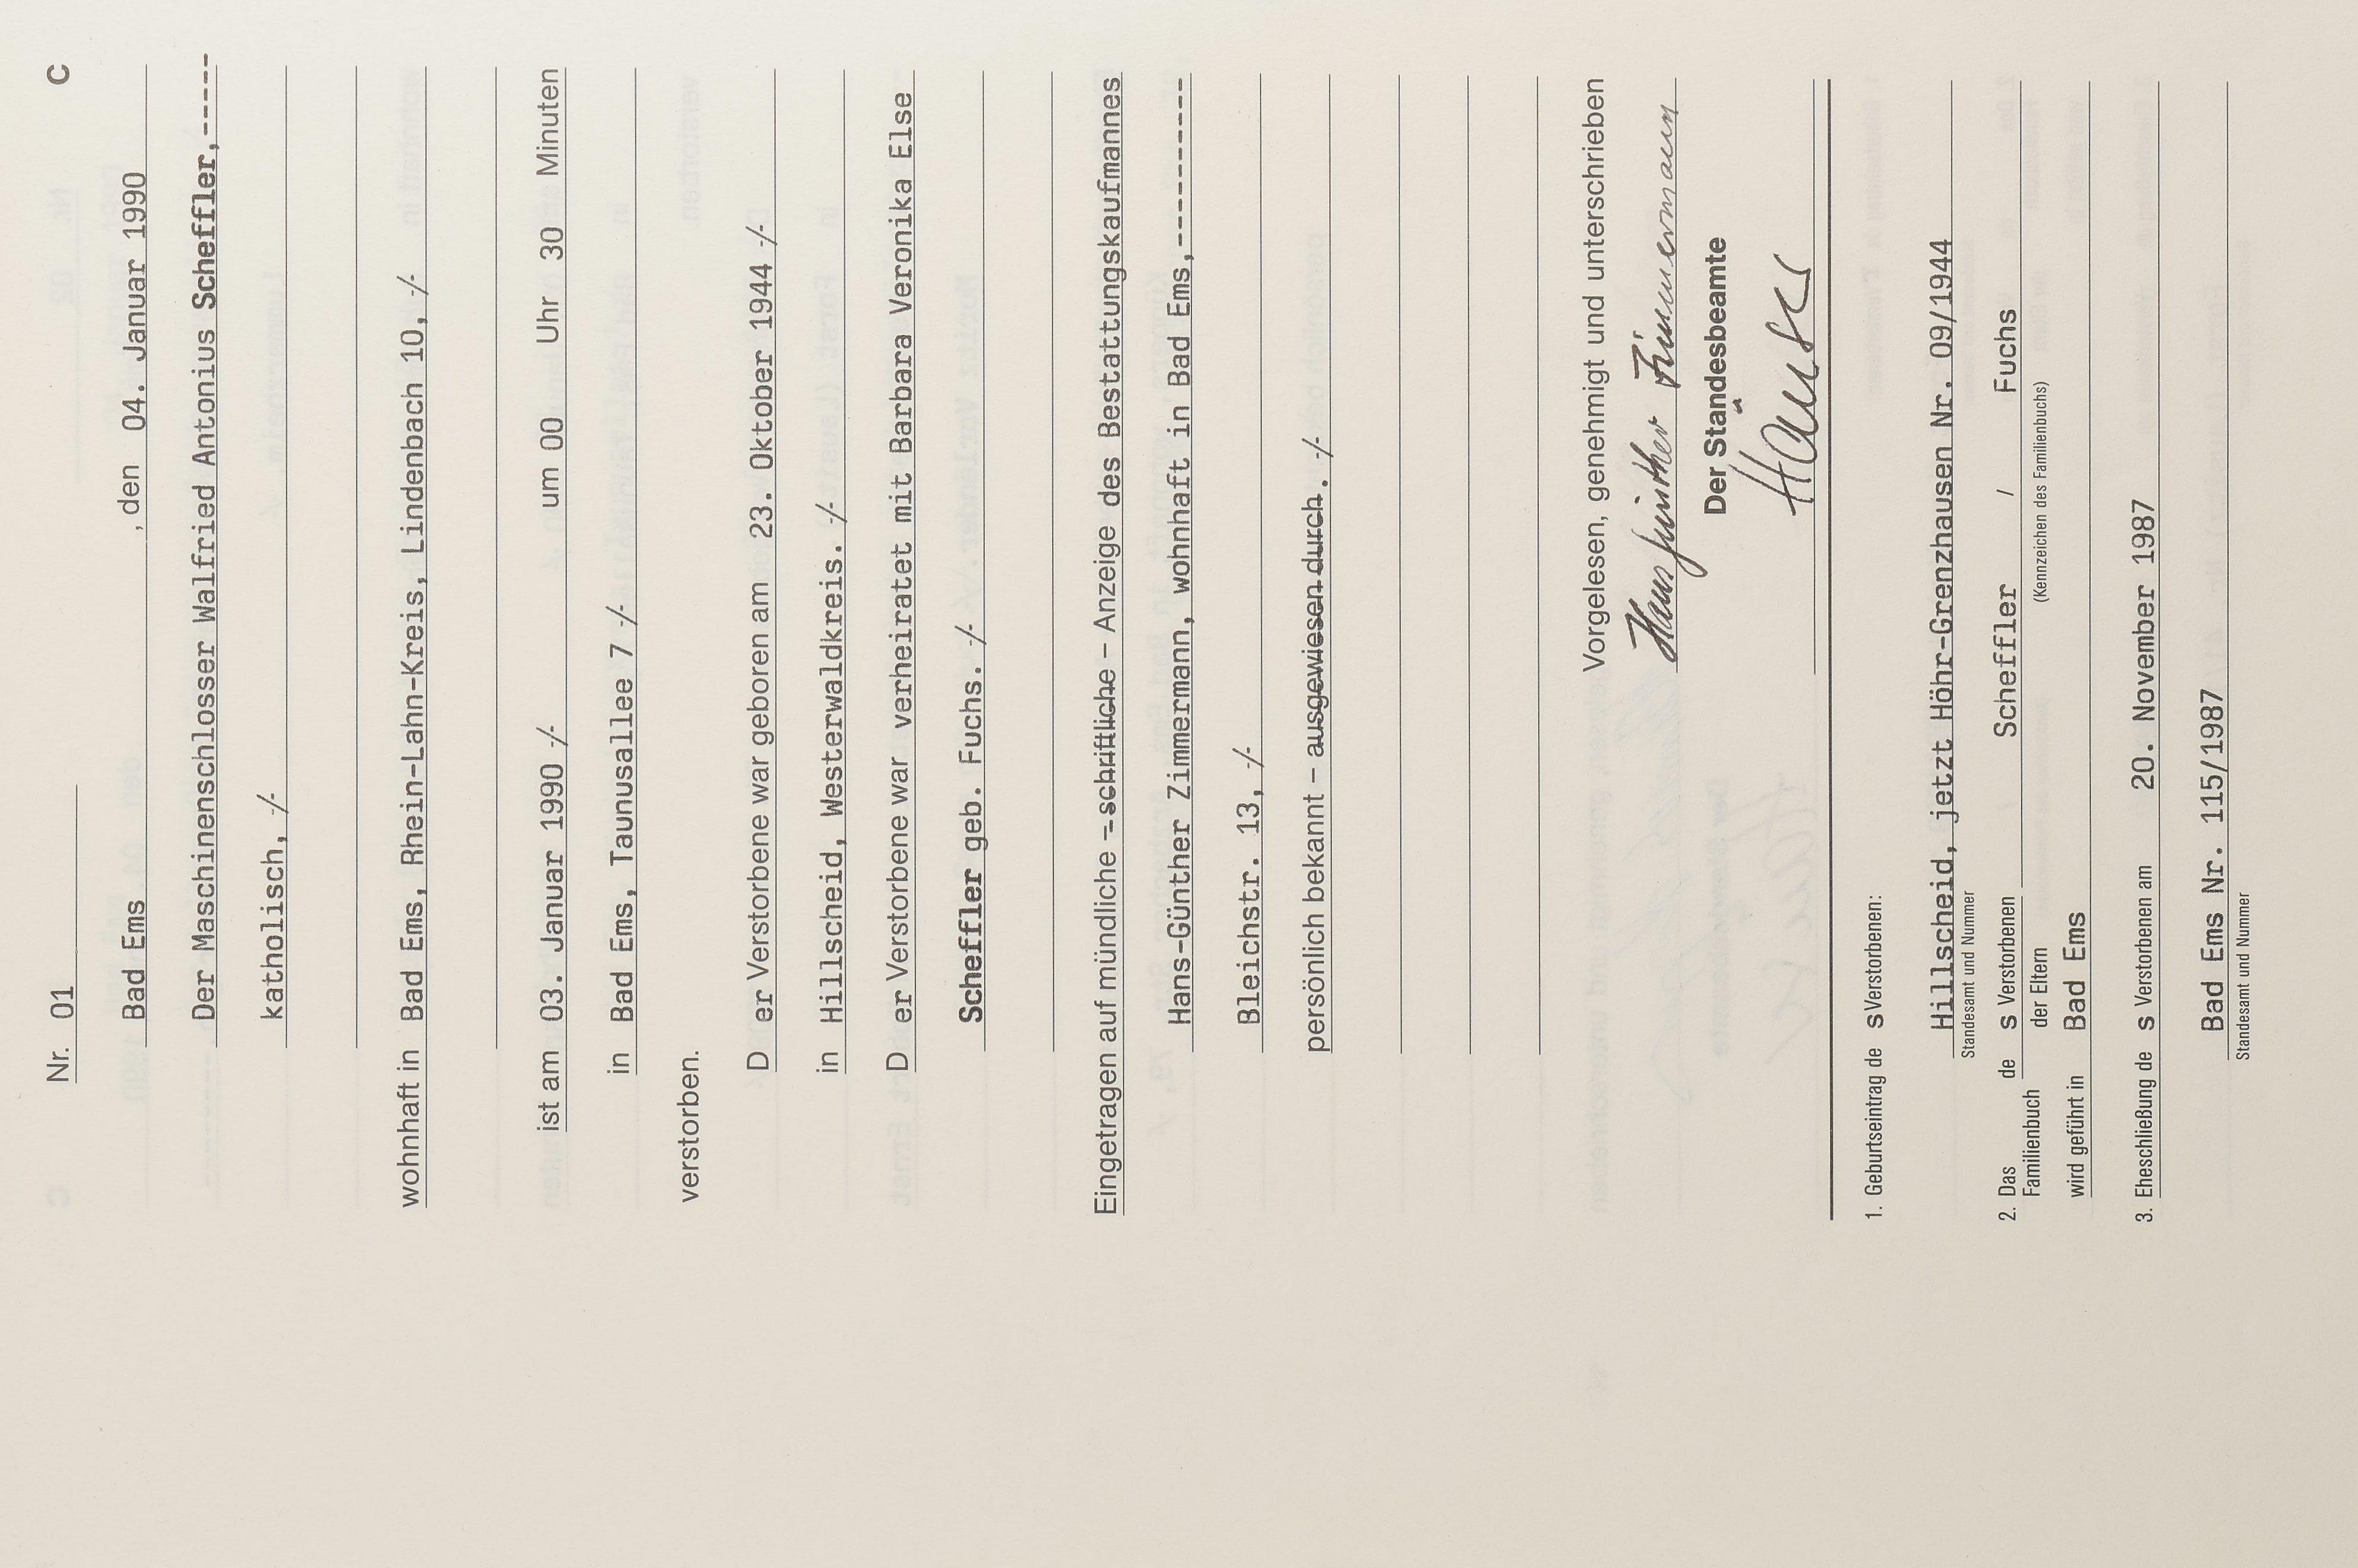 Nr. 01 C
Bad Ems , den 04. Januar 1990
Der Maschinenschlosser Walfried Antonius Scheffler,-----
katholisch, -/-
wohnhaft in Bad Ems, Rhein-Lahn-Kreis, Lindenbach 10, -/-
ist am 03. Januar 1990 -/- um 00 Uhr 30 Minuten
in Bad Ems, Taunusallee 7 -/-
verstorben.
D er Verstorbene war geboren am 23. Oktober 1944 -/-
in Hillscheid, Westerwaldkreis. -/-
D er Verstorbene war verheiratet mit Barbara Veronika Else
Scheffler geb. Fuchs. -/-
Eingetragen auf mündliche – schriftliche – Anzeige des Bestattungskaufmannes
Hans-Günther Zimmermann, wohnhaft in Bad Ems,----------
Bleichstr. 13, -/-
persönlich bekannt – ausgewiesen durch . -/-
Vorgelesen, genehmigt und unterschrieben
Hans Günther Zimmermann
Der Standesbeamte
1. Geburtseintrag de s Verstorbenen:
Hillscheid, jetzt Höhr-Grenzhausen Nr. 09/1944
Standesamt und Nummer
2. Das Familienbuch de s Verstorbenen Scheffler / Fuchs
der Eltern (Kennzeichen des Familienbuchs)
wird geführt in Bad Ems
3. Eheschließung de s Verstorbenen am 20. November 1987
Bad Ems Nr. 115/1987
Standesamt und Nummer